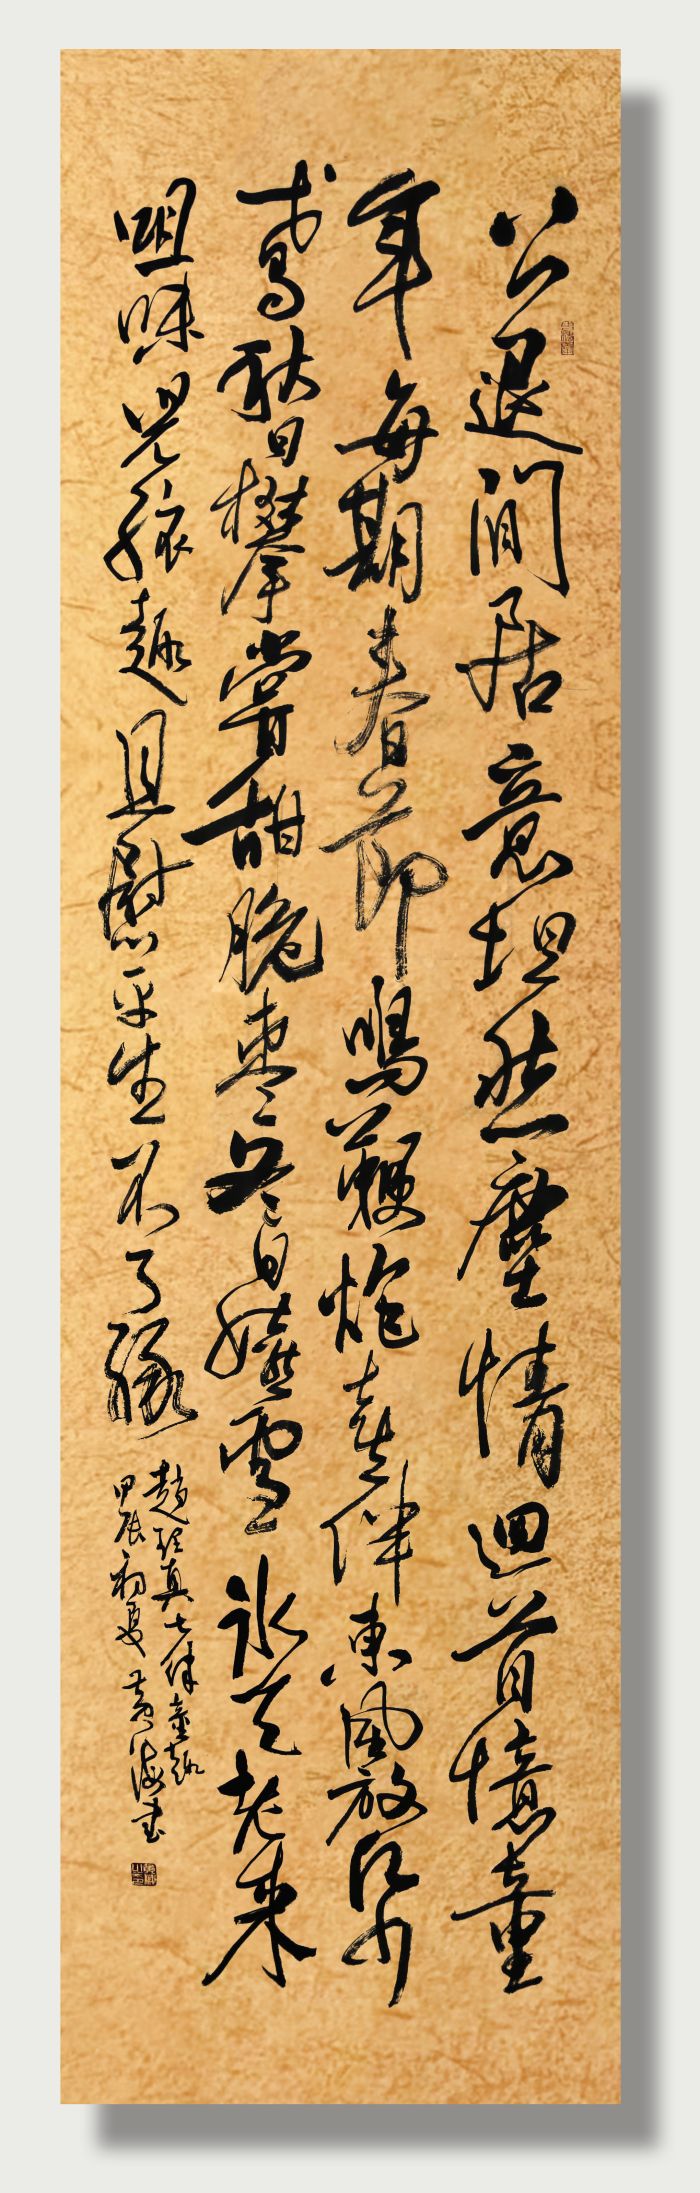 公退閒居意坦然塵情迴首憶童
年每期春節鳴鞭炮喜伴東風放帋
鳶秋日攀嘗甜脆棗冬日嬉雪冰天老來
咀味兒孩趣且慰平生不了緣
趙真七律童趣
甲辰初夏 黃海書